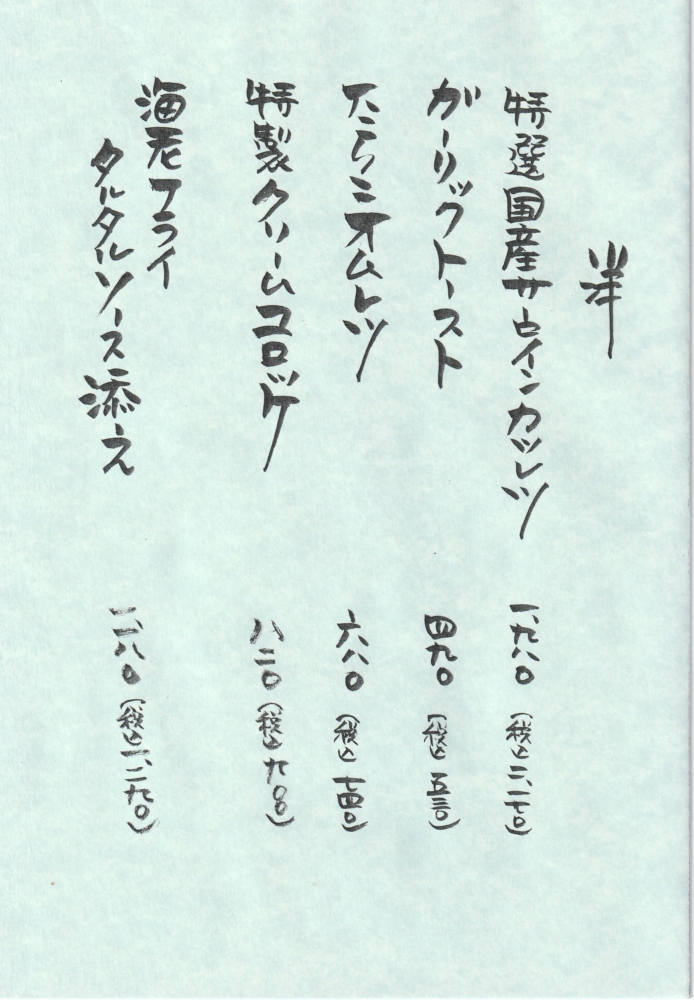 特選国産サーロインカツレツ 一、九八〇（税込 二、一七〇）
ガーリックトースト 四九〇（税込 五三〇）
たらこオムレツ 六八〇（税込 七四〇）
特製クリームコロッケ 八二〇（税込 九〇〇）
海老フライ
タルタルソース添え 一、一八〇（税込 一、二九〇）